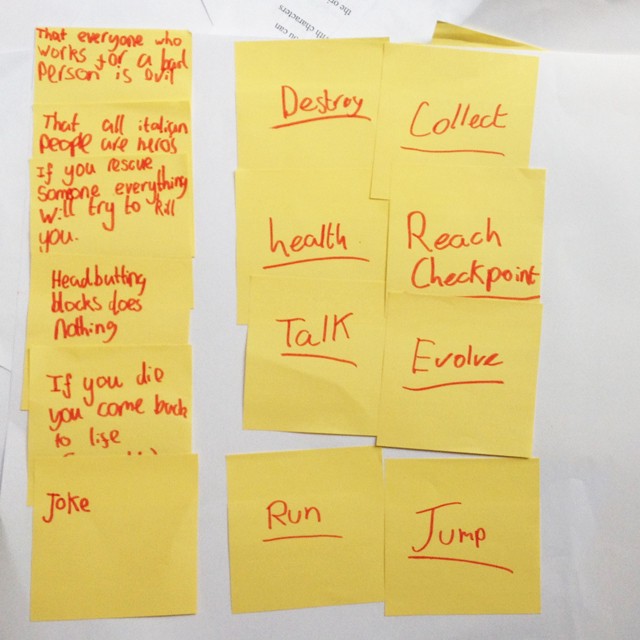 That everyone who
works for a bad
person is evil
That all italian
people are hero's
If you rescue
someone everything
will try to kill
you.
Headbutting
blocks does
nothing
If you die
you come back
to life
Joke
Destroy
Collect
health
Reach
Checkpoint
Talk
Evolve
Run
Jump